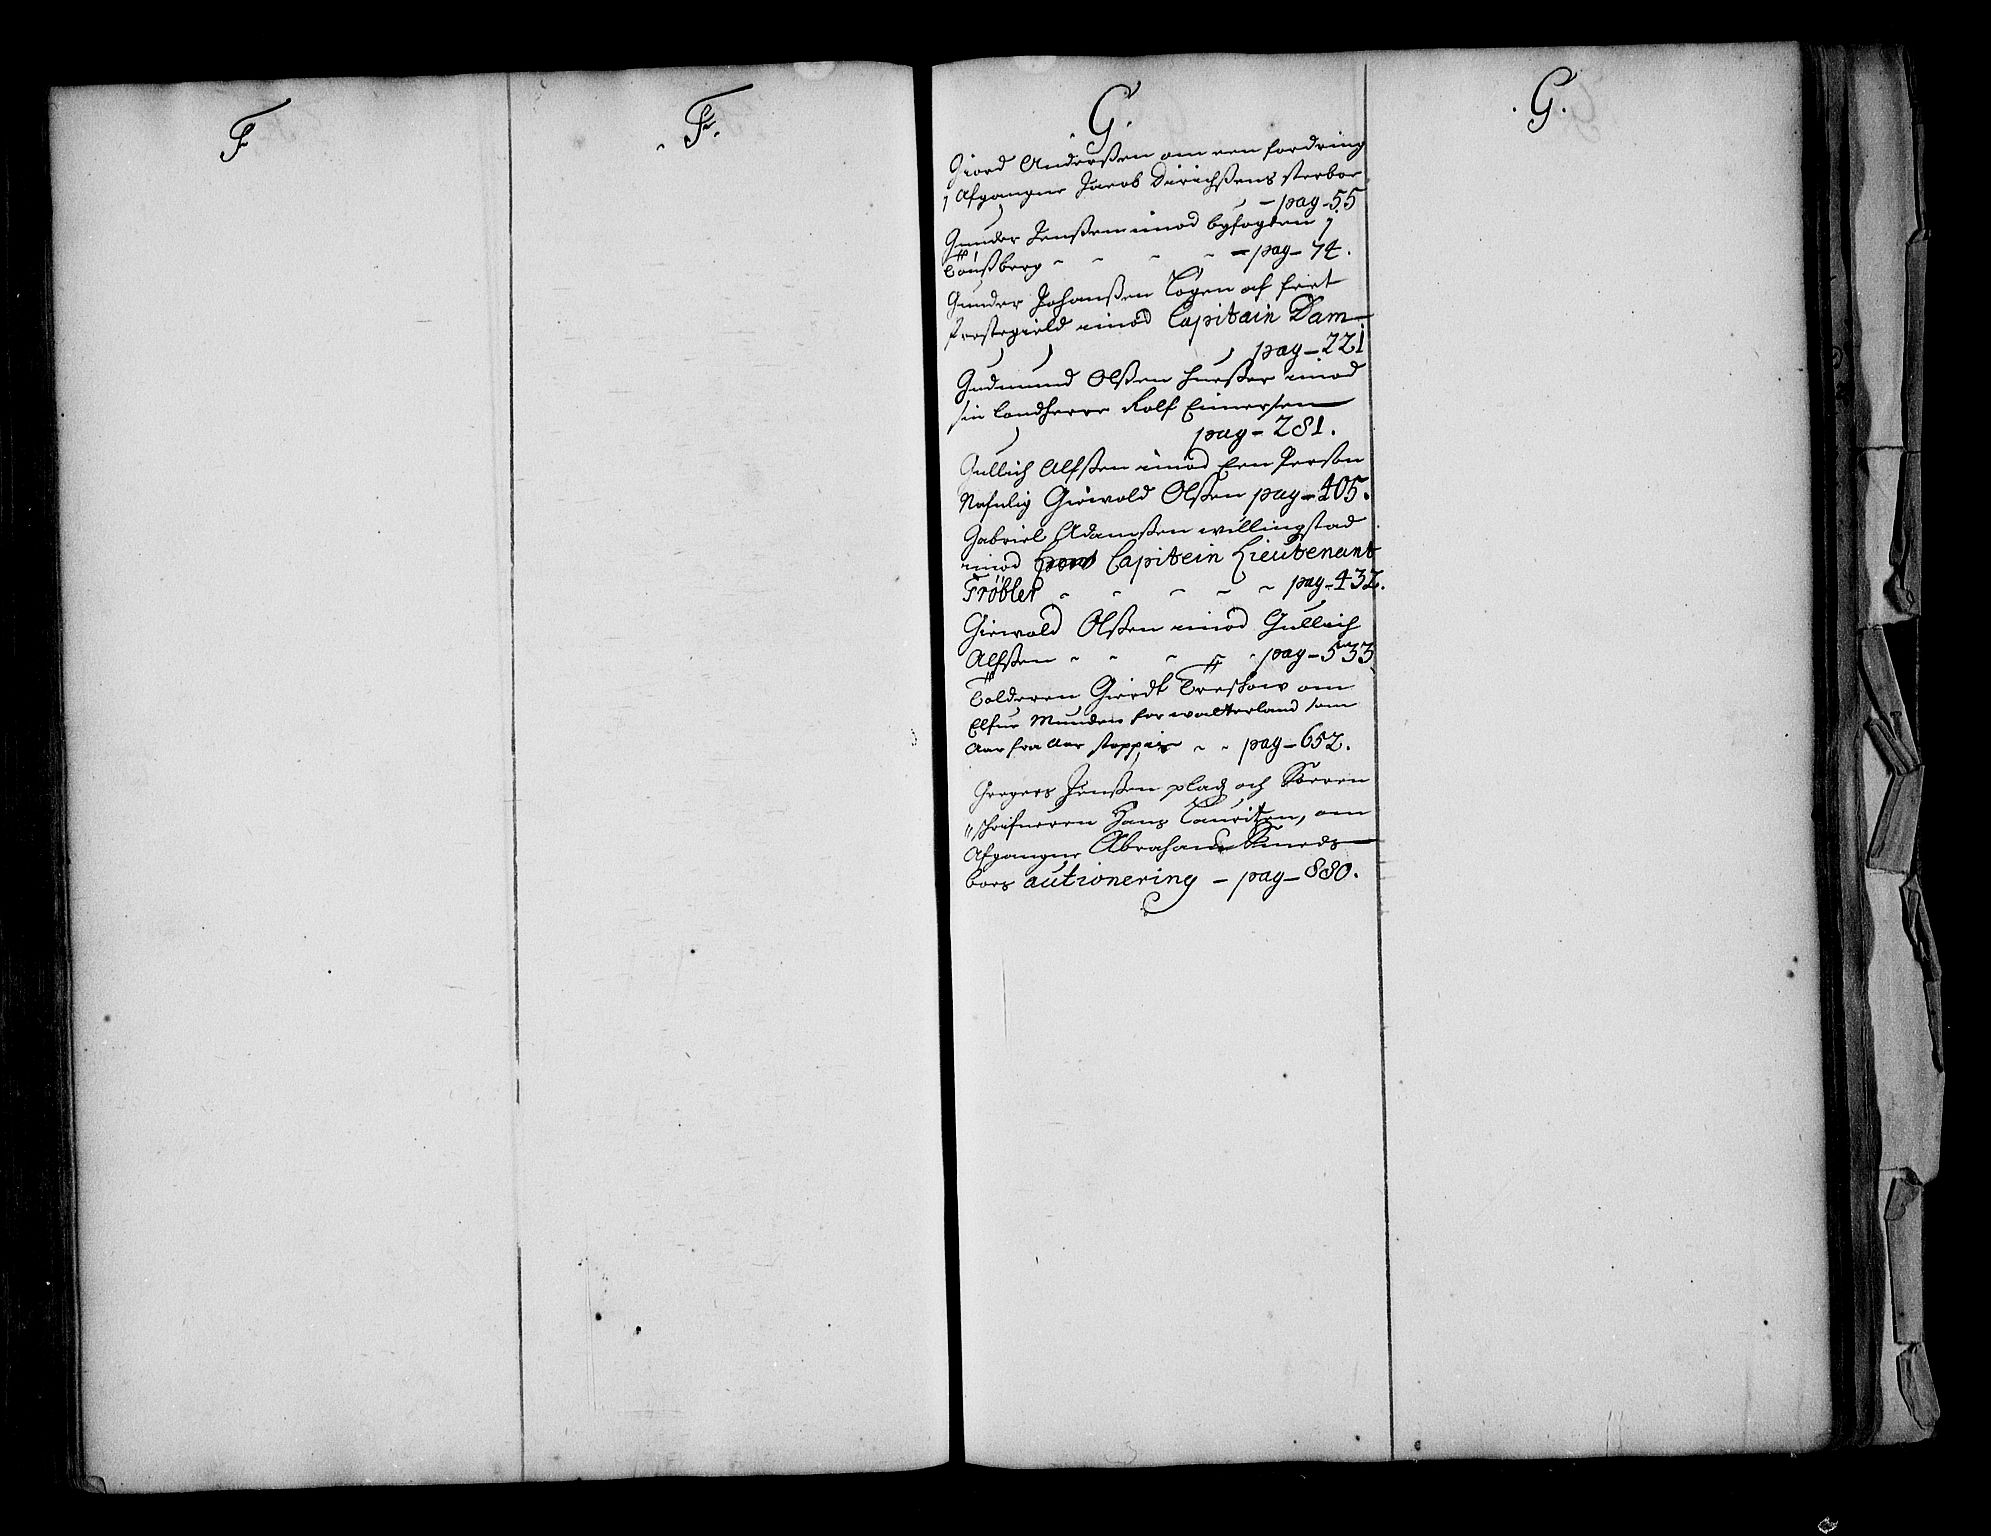 F
F.
G.
Giord Anderßen om een fordring
i Afgangne Jacob Dirichßens sterboe
pag-55
Gunder Jenßen imod byfogden i
Tönßberg - - - - pag-74.
Gunder Johanßen af
Prestegield imod Capitain Dam
pag-221
Gudmund Olßen imod
sin Landherre Rolf Einersen
pag-281.
Gullich Alfßen imod Een Person
Nafnlig Giewald Olßen pag-405.
Gabriel Adamßen willingstad
imod Capitein Lieutenant
Fröbler - - - - - pag-432.
Giewald Olßen imod Gullich
Alfßen - - - - pag-533
Tolderen Giordt Treschow om
for som
Aar fra Aar - - pag-652.
Gregers Jenßen och Sorren
schrifueren Hans Lauritzen, om
Afgangne Abraham
boes autionering - pag-880.
.G.